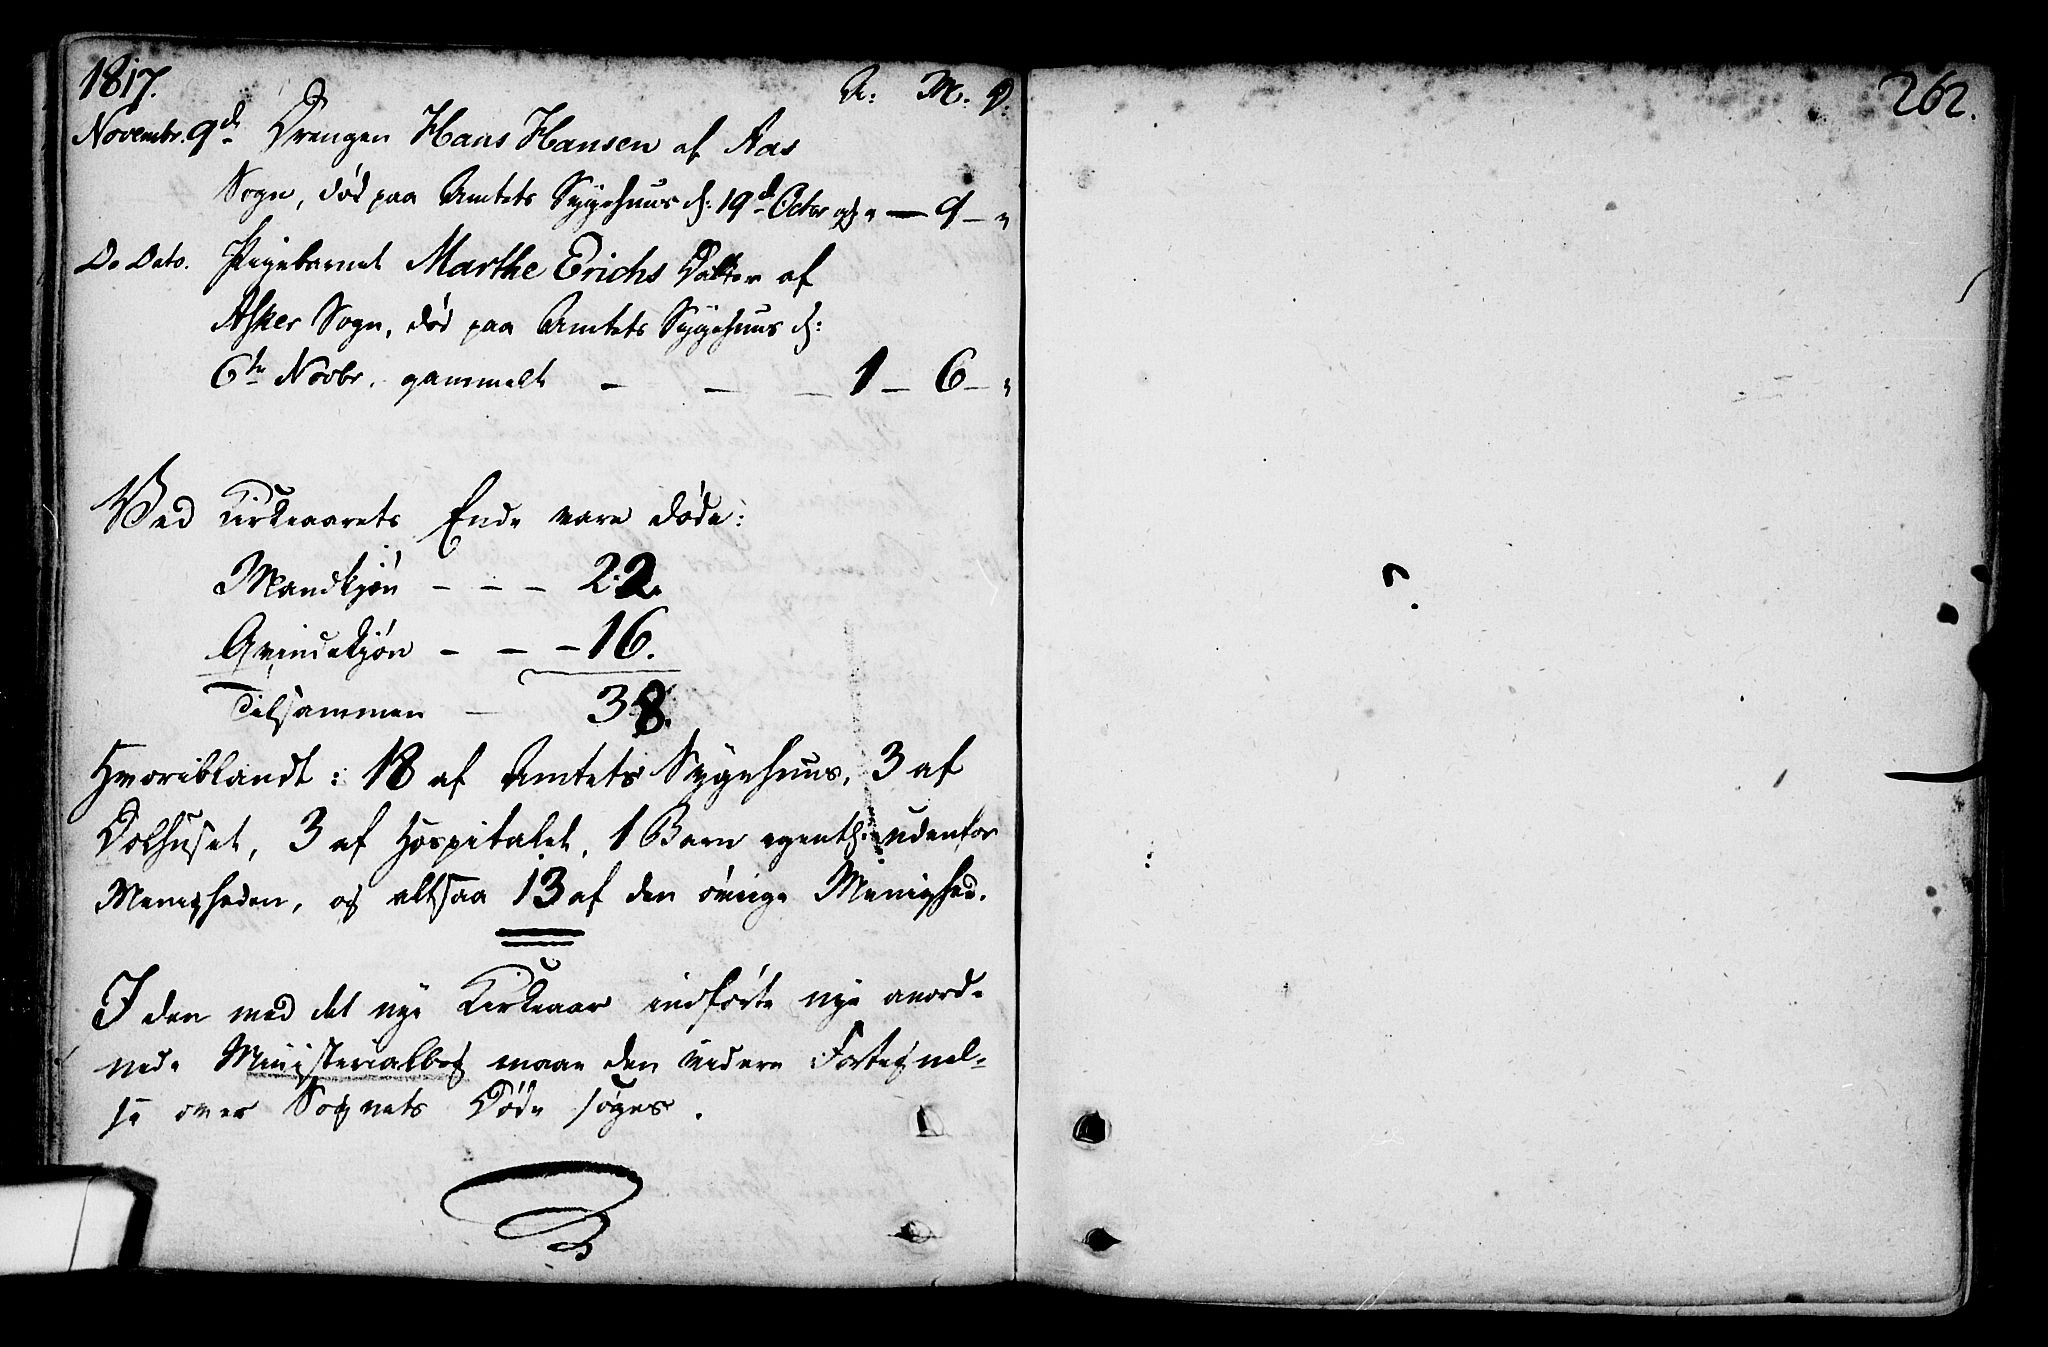 1817.
A: M. D:
Novembr. 9de Drengen Hans Hansen af Aas
Sogn, død paa Amtets Sygehuus d: 19de Octbr gl. " — 9 — "
Do Dato. Pigebarnet Marthe Erichs Datter af
Asker Sogn, død paa Amtets Sygehuus d:
6te Novbr. gammelt - - - 1 - 6 - "
Ved Kirkeaarets Ende vare døde:
Mandkjøn - - - 22.
Qvindekjøn - - - 16.
Tilsammen - 38.
Hvoriblandt: 18 af Amtets Sygehuus, 3 af
Dolhuset, 3 af Hospitalet, 1 Barn egentl. udenfor
Menigheden, og altsaa 13 af den øvrige Menighed.
I den med det nye Kirkeaar indførte nye anord-
nede Ministerialbog maae den videre Fortegnel-
se over Sognets Døde søges.
262.